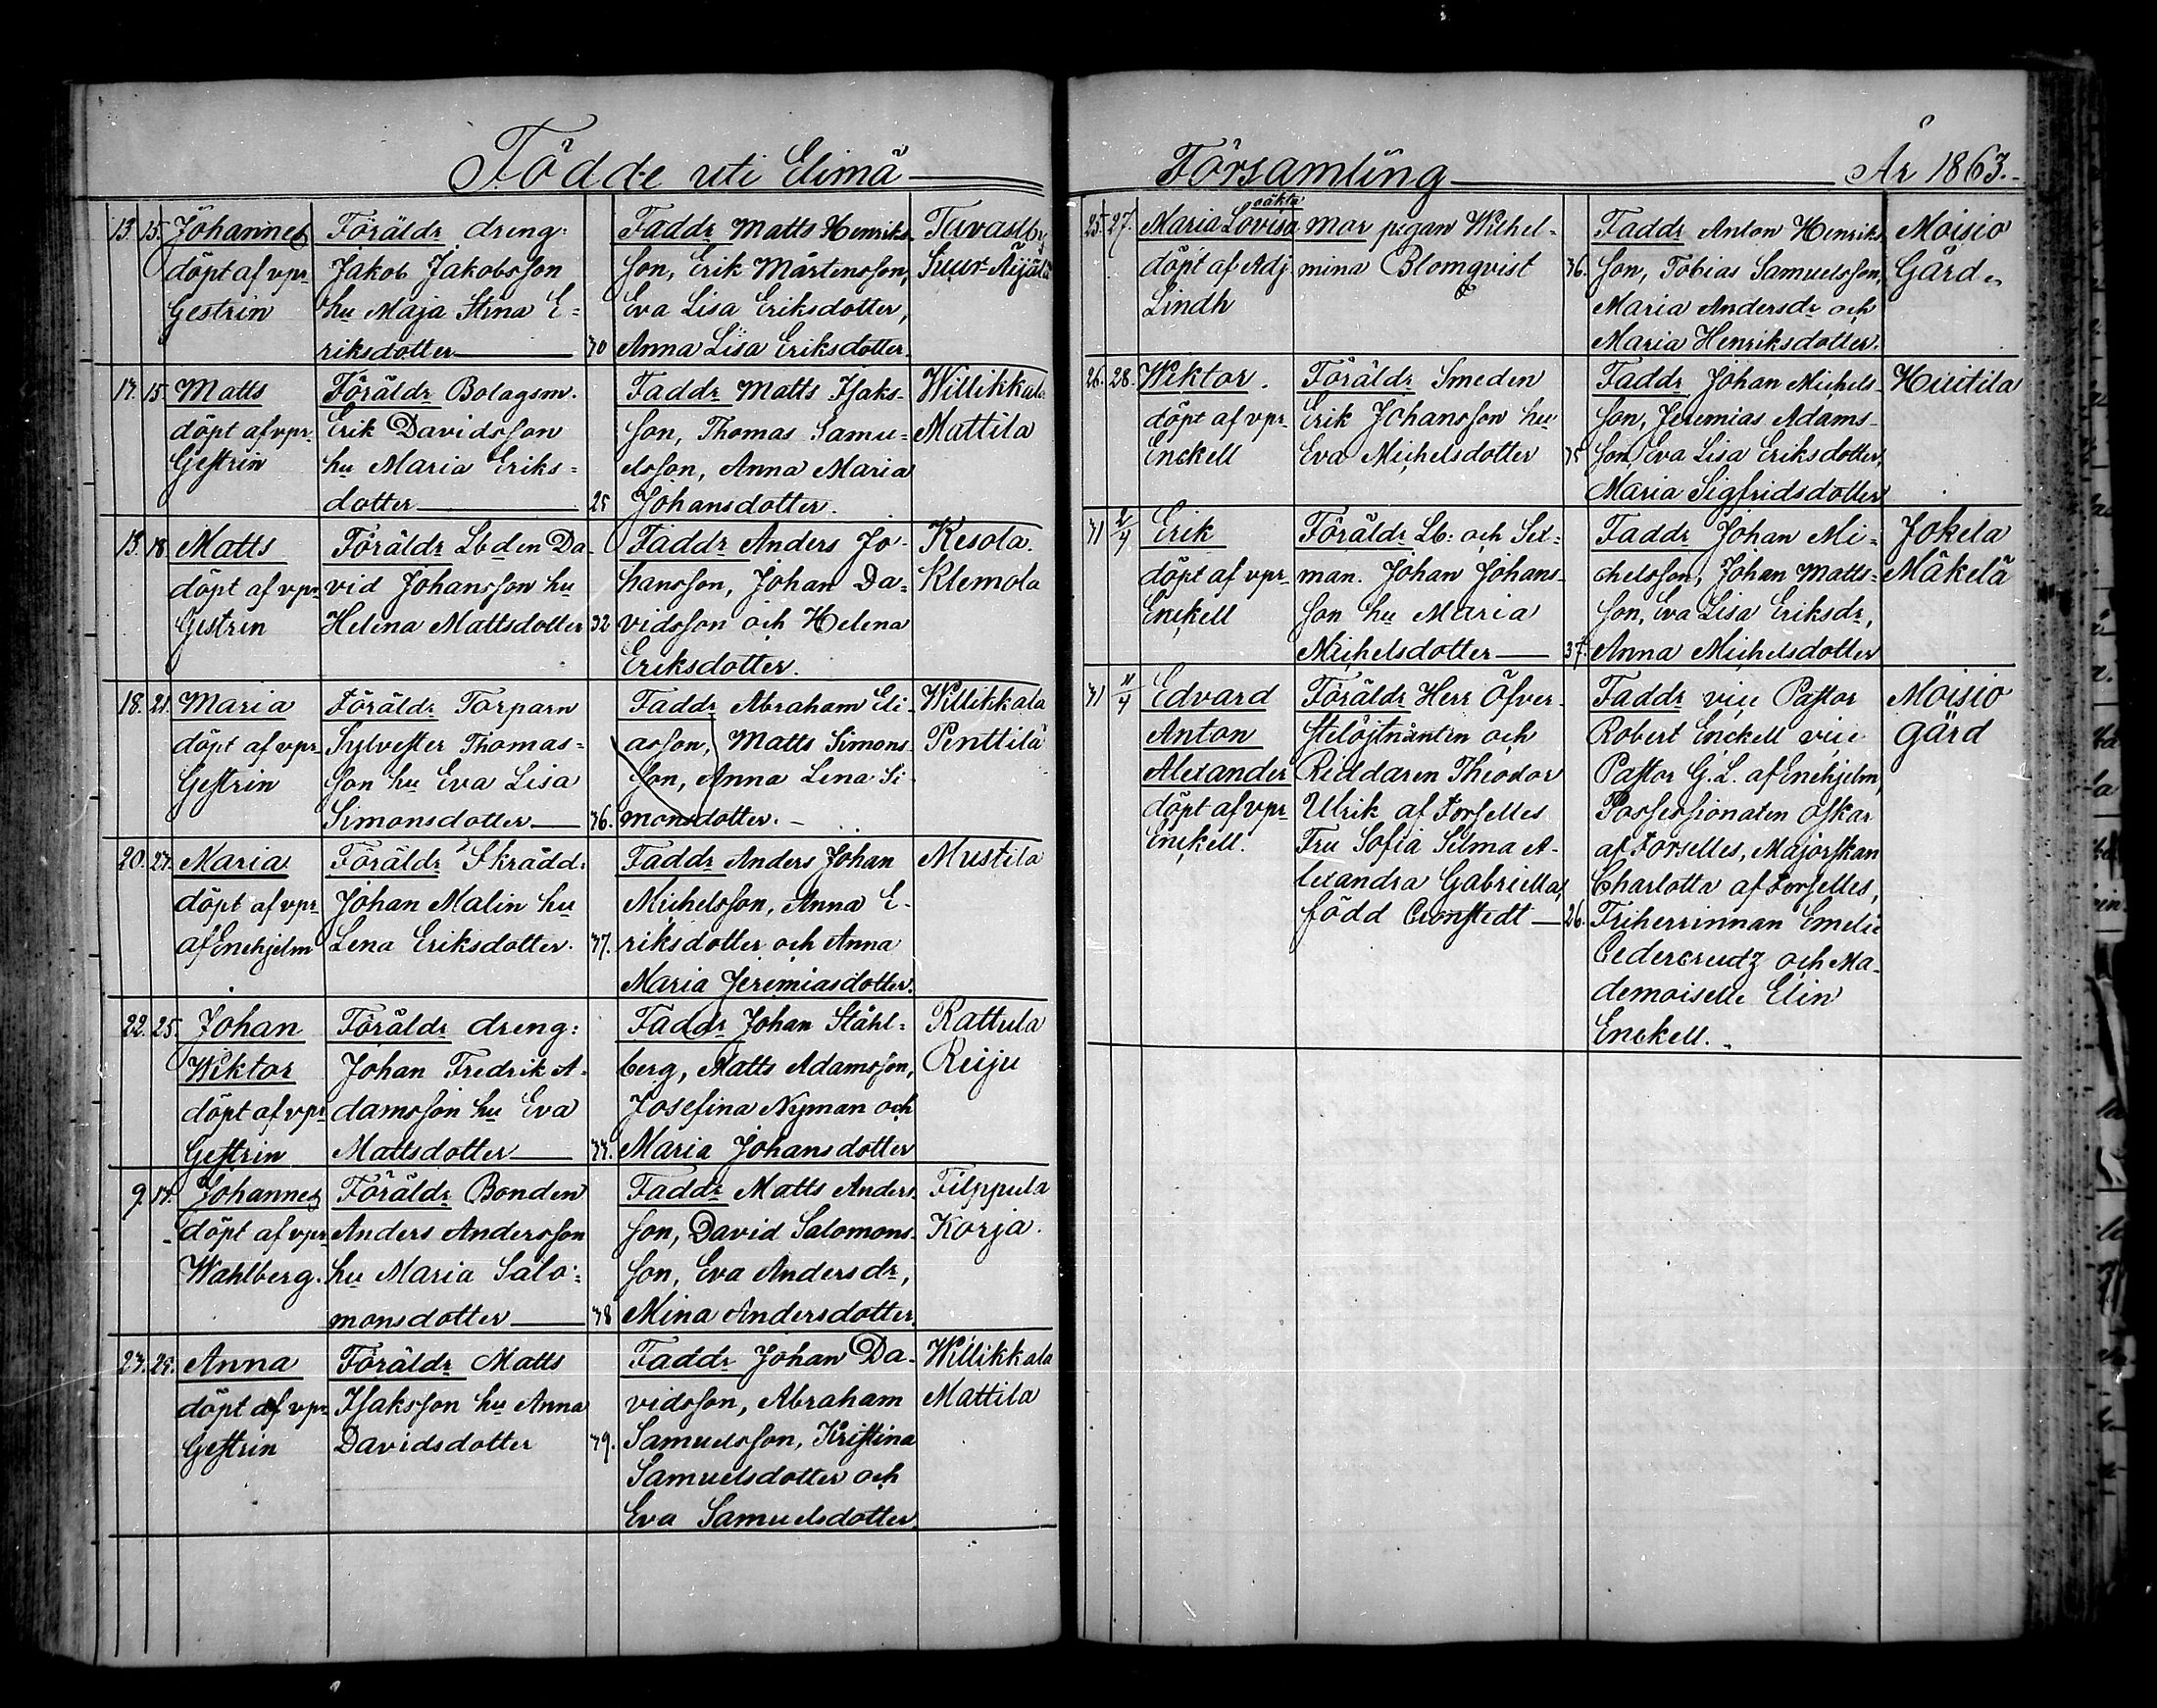 Födde uti Elimä
13. 15. Johannes Föräldr dreng: Faddr Matts Henriks- Tavastby
döpt af vpr Jakob Jakobsson son, Erik Mårtensson, Suur Äijälä
Gestrin hu Maja Stina E= Eva Lisa Eriksdotter,
riksdotter 30 Anna Lisa Eriksdotter.
15. Matts Föräldr Bolagsm. Faddr Matts Isaks- Willikkala
döpt af vpr. Erik Davidsson son, Thomas Samu= Mattila
Gestrin hu Maria Eriks= elsson, Anna Maria
dotter 25 Johansdotter.
18. Matts Föräldr Lbden Da- Faddr Anders Jo- Kesola.
döpt af vpr vid Johansson hu hansson, Johan Da= Klemola
Gestrin Helena Mattsdotter 32 vidsson och Helena
Eriksdotter.
18. 21. Maria Föräldr Torparn Faddr Abraham Eli- Willikkala
döpt af vpr Sylvester Thomas= asson, Matts Simons- Penttilä
Gestrin son hu Eva Lisa son, Anna Lena Si-
Simonsdotter 36. monsdotter.
20. Maria Föräldr Skrädd: Faddr Anders Johan Mustila
döpt af vpr Johan Malin hu Michelsson, Anna E-
af Enehjelm Lena Eriksdotter. 37. riksdotter och Anna
Maria Jeremiasdotter.
22. 25. Johan Föräldr dreng: Faddr Johan Ståhl= Rattula
Wiktor Johan Fredrik A- berg, Matts Adamsson, Reiju
döpt af vpr damsson hu Eva Josefina Nyman och
Gestrin Mattsdotter Maria Johansdotter
9. 14. Johannes Föräldr Bonden Faddr Matts Anders- Filppula
döpt af vpr Anders Andersson son, David Salomons- Korja.
Wahlberg. hu Maria Salo= son, Eva Andersdr,
monsdotter 38 Mina Andersdotter.
25. Anna Föräldr Matts Faddr Johan Da- Willikkala
döpt af vpr Isaksson hu Anna vidsson, Abraham Mattila
Gestrin Davidsdotter 39. Samuelsson, Kristina
Samuelsdotter och
Eva Samuelsdotter.
Församling År 1863.
oäkta
25. 27. Maria Lovisa Mor pigan Wilhel- Faddr Anton Henriks- Moisio
döpt af Adj mina Blomqvist 36. son, Tobias Samuelsson, Gård
Lindh Maria Andersdr och
Maria Henriksdotter.
26. 28. Wiktor. Föräldr Smeden Faddr Johan Michels- Huitila
döpt af vpr Erik Johansson hu son, Jeremias Adams-
Enckell Eva Michelsdotter 35 son, Eva Lisa Eriksdotter,
Maria Sigfridsdotter
31 2/4 Erik Föräldr Lb: och Sex= Faddr Johan Mi= Jokela
döpt af vpr man. Johan Johans- chelsson, Johan Matts= Mäkelä
Enckell son hu Maria son, Eva Lisa Eriksdr,
Michelsdotter 37. Anna Michelsdotter
31 11/4 Edvard Föräldr Herr Öfver- Faddr vice Pastor Moisio
Anton stelöjtnanten och Robert Enckell vice gård
Alexander Riddaren Theodor Pastor G. L. af Enehjelm,
döpt af vpr Ulrik af Forselles Possessionaten Oskar
Enckell. Fru Sofia Selma A- af Forselles, Majorskan
lexandra Gabriella, Charlotta af Forselles,
född Cronstedt 26. Friherrinnan Emelie
Cedercreutz och Ma-
demoiselle Elin
Enckell.